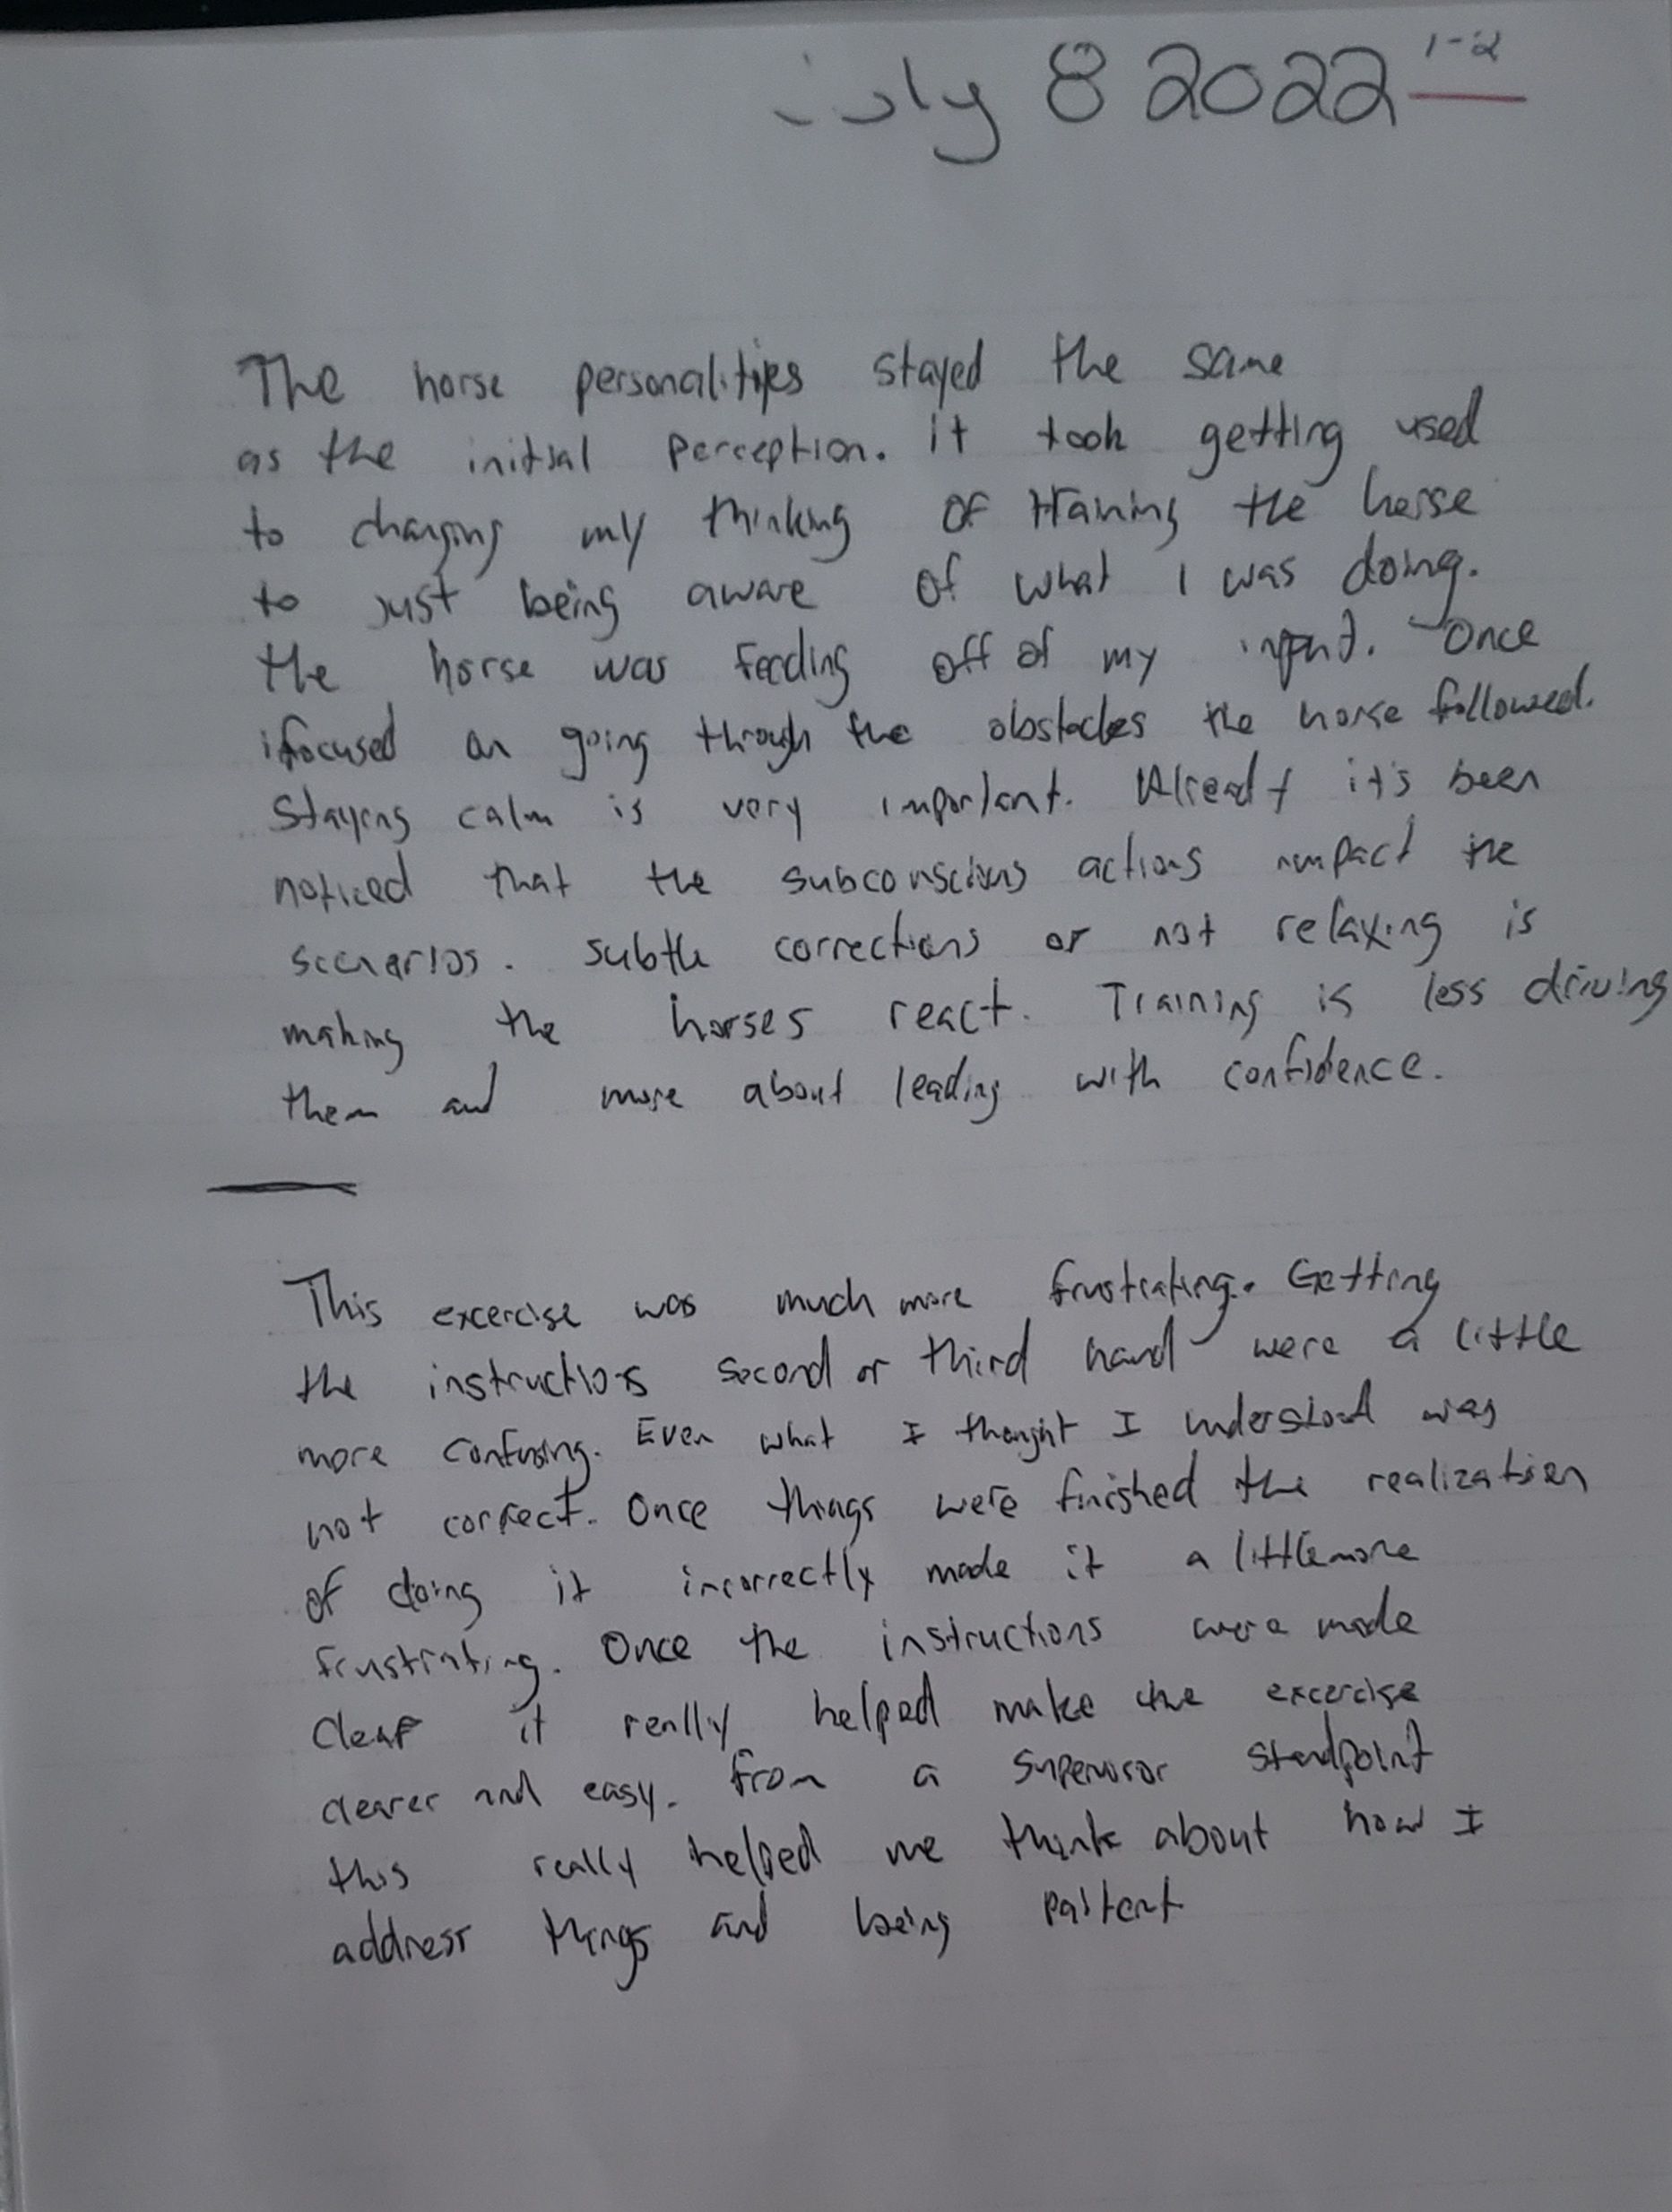 July 8 2022 1-2
The horse personalities stayed the same
as the initial perception. it took getting used
to changing my thinking of training the horse
to just being aware of what I was doing.
the horse was feeding off of my input. Once
i focused on going through the obstacles the horse followed.
Staying calm is very important. Already it's been
noticed that the subconscious actions impact the
scenarios. subtle corrections or not relaxing is
making the horses react. Training is less driving
them and more about leading with confidence.
This excercise was much more frustrating. Getting
the instructions second or third hand were a little
more confusing. Even what I thought I understood was
not correct. Once things were finished the realization
of doing it incorrectly made it a little more
frustrating. Once the instructions were made
clear it really helped make the excercise
clearer and easy. From a supervisor standpoint
this really helped me think about how I
address things and being paitent